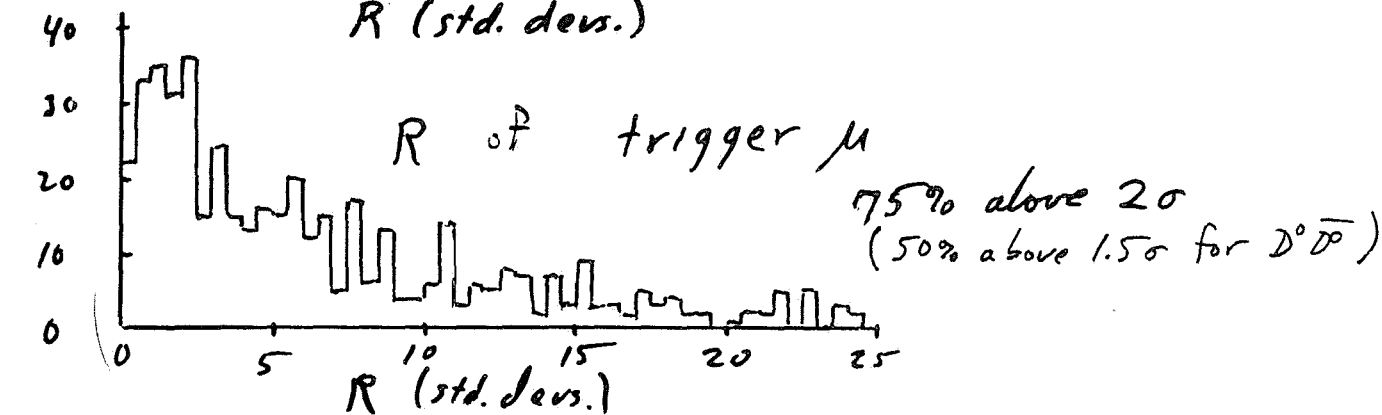 R (std. devs.)
40
30
20
10
0
R of trigger μ
75% above 2σ
(50% above 1.5σ for D⁰D̅⁰)
0 5 10 15 20 25
R (std. devs.)